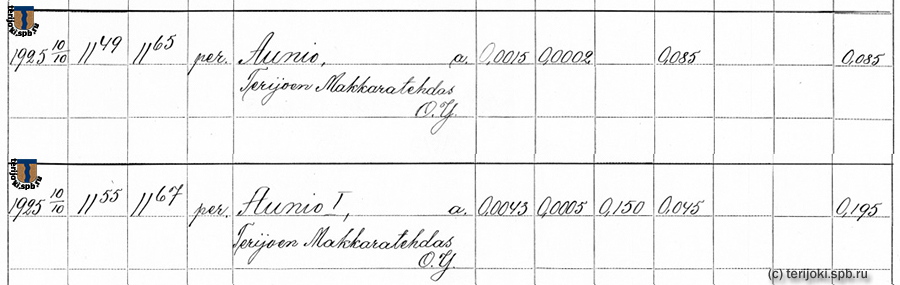 terijoki.spb.ru
1925 10/10 11 49 11 65 per. Aunio, a. 0,0015 0,0002 0,085 0,085
Terijoen Makkaratehdas
O.Y.
terijoki.spb.ru
1925 10/10 11 55 11 67 per. Aunio I, a. 0,0043 0,0005 0,150 0,045 0,195
Terijoen Makkaratehdas
O.Y.
(c) terijoki.spb.ru